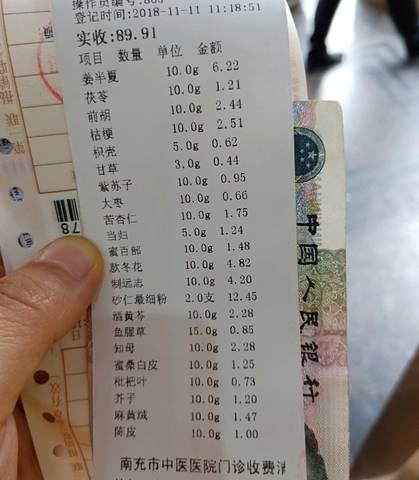 登记时间:2018-11-11 11:18:51
实收:89.91
项目 数量 单位 金额
姜半夏 10.0g 6.22
茯苓 10.0g 1.21
前胡 10.0g 2.44
桔梗 10.0g 2.51
枳壳 5.0g 0.62
甘草 3.0g 0.44
紫苏子 10.0g 0.95
大枣 10.0g 0.66
苦杏仁 10.0g 1.75
当归 5.0g 1.24
蜜百部 10.0g 1.48
款冬花 10.0g 4.82
制远志 10.0g 4.20
砂仁最细粉 2.0支 12.45
酒黄芩 10.0g 2.28
鱼腥草 15.0g 0.85
知母 10.0g 2.28
蜜桑白皮 10.0g 1.25
枇杷叶 10.0g 0.73
芥子 10.0g 1.20
麻黄绒 10.0g 1.47
陈皮 10.0g 1.00
南充市中医医院门诊收费
78
中国人民银行